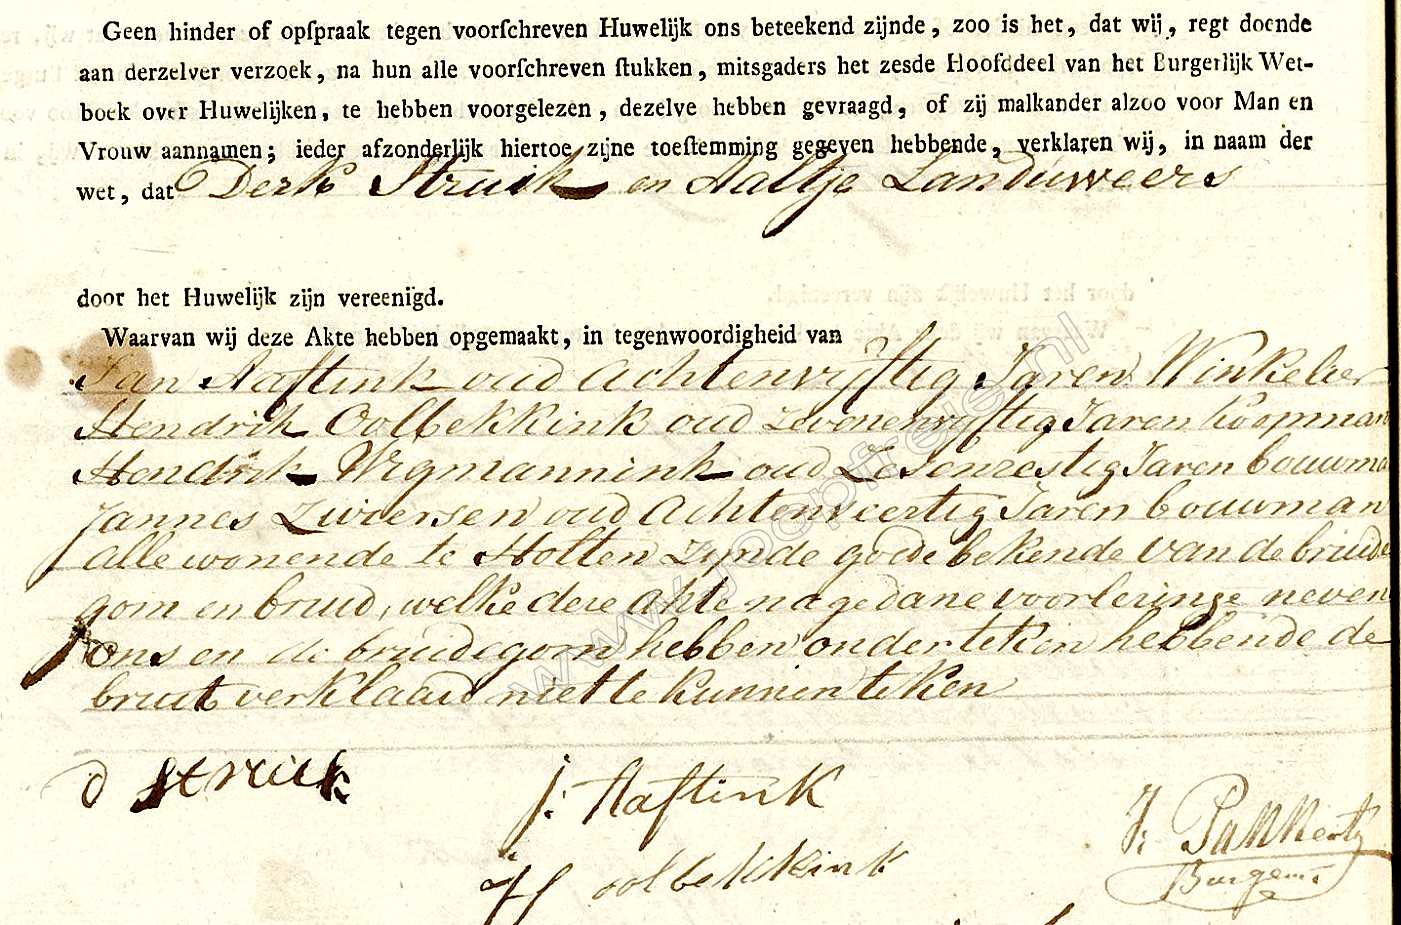 Geen hinder of opſpraak tegen voorſchreven Huwelijk ons beteekend zijnde, zoo is het, dat wij, regt doende
aan derzelver verzoek, na hun alle voorſchreven ſtukken, mitsgaders het zesde Hoofddeel van het Burgerlijk Wet-
boek over Huwelijken, te hebben voorgelezen, dezelve hebben gevraagd, of zij malkander alzoo voor Man en
Vrouw aannamen; ieder afzonderlijk hiertoe zijne toeſtemming gegeven hebbende, verklaren wij, in naam der
wet, dat Derk Struik en Aaltje Landuweers
door het Huwelijk zijn vereenigd.
Waarvan wij deze Akte hebben opgemaakt, in tegenwoordigheid van
Jan Aaftink oud Achtenvyftig Jaren Winkelier
Hendrik Oolbekkink oud zevenenvyftig Jaren Koopman
Hendrik Wegmannink oud Zesenzestig Jaren bouwma
Jannes Zwiersen oud Achtenveertig Jaren bouwman
alle wonende te Holten zynde goede bekende van de bruide
gom en bruid, welke dese akte na gedane voorlesinge neven
ons en de bruidegom hebben onderteken hebbende de
bruit verklaard niet te kunnen teken
D Struik
J: Aaftink
H oolbekkink
J: Pankertz
Burgem:
www.joopfree.nl